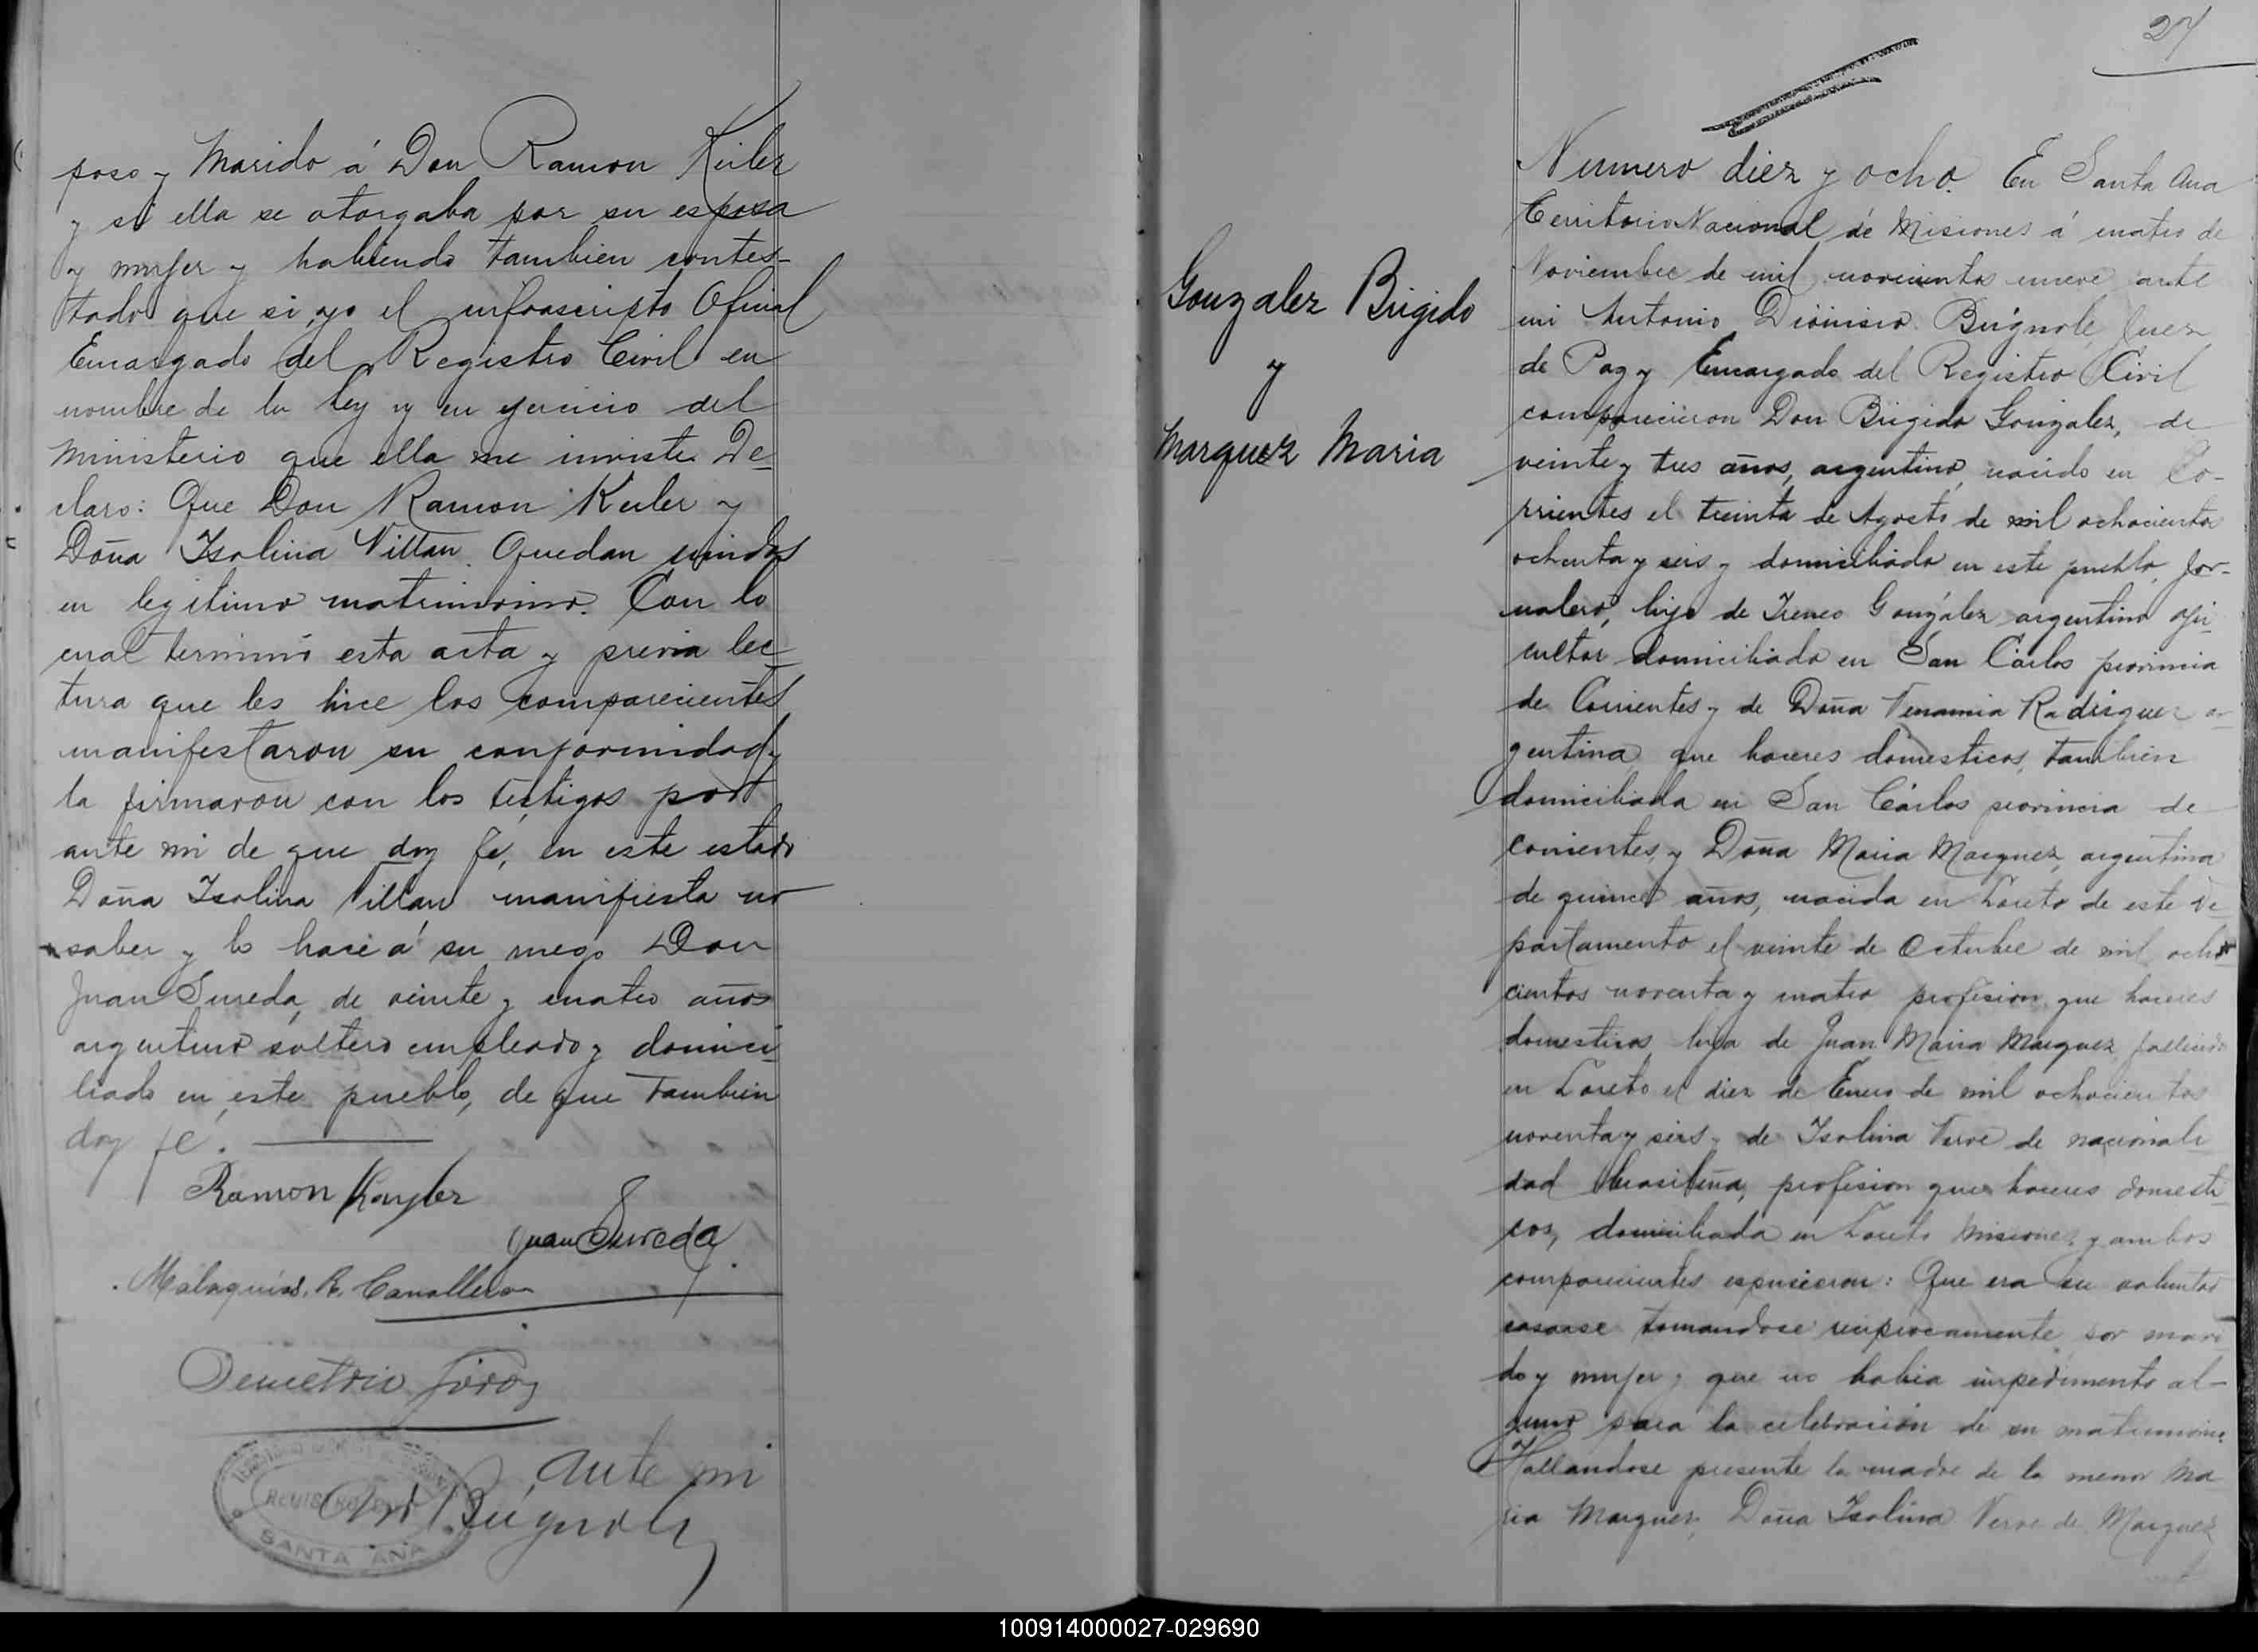 poso y Marido á Don Ramon Keiler
y si ella se otorgaba por su esposa
y mujer y habiendo tambien contes-
tado que si, yo el infrascripto Oficial
Encargado del Registro Civil en
nombre de la ley y en ejercicio del
Ministerio que ella me inviste De
claro: Que Don Ramon Keiler y
Doña Isolina Villan. Quedan unidos
en legitimo matrimonio. Con lo
cual terminó esta acta y previa lec
tura que les hice los comparecientes
manifestaron su conformidad y
la firmaron con los testigos port
ante mi de que doy fé, en este estado
Doña Isolina Villan manifiesta no
saber y lo hace á su ruego Don
Juan Sureda, de veinte y cuatro años
argentino soltero empleado y domici
liado en este pueblo, de que tambien
doy fé.
Ramon Kayler
Juan Sureda
Malaquias. R. Cavallero
Demetrio
ante mi
REGISTRO CIVIL
SANTA ANA
27
Gonzalez Brigido
y
Marquez Maria
Numero diez y ocho. En Santa Ana
Territorio Nacional de Misiones á cuatro de
Noviembre de mil novecientos nueve ante
mi Antonio Dionisio Brignole, Juez
de Paz y Encargado del Registro Civil
comparecieron Don Brigido Gonzalez, de
veinte y tres años, argentino, nacido en Co-
rrientes el treinta de Agosto de mil ochocientos
ochenta y seis y domiciliado en este pueblo, jor-
nalero, hijo de Ireneo Gonzalez argentino agri
cultor domiciliado en San Carlos provincia
de Corrientes y de Doña Venancia Rodriguez ar
gentina, que haceres domesticos, tambien
domiciliada en San Cárlos provincia de
Corrientes, y Doña Maria Marquez, argentina
de quince años, nacida en Loreto de este De
partamento el veinte de Octubre de mil ocho
cientos noventa y cuatro profesion que haceres
domesticos hija de Juan Maria Marquez fallecido
en Loreto el diez de Enero de mil ochocientos
noventa y seis y de Isolina de nacionali
dad brasileña, profesion que haceres domesti
cos, domiciliada en Loreto Misiones y ambos
comparecientes espusieron: Que era su voluntad
casarse tomandose reciprocamente por mari
do y mujer y que no habia impedimento al-
guno para la celebracion de su matrimonio.
Hallandose presente la madre de la menor Ma
ria Marquez, Doña Isolina de Marquez
100914000027-029690